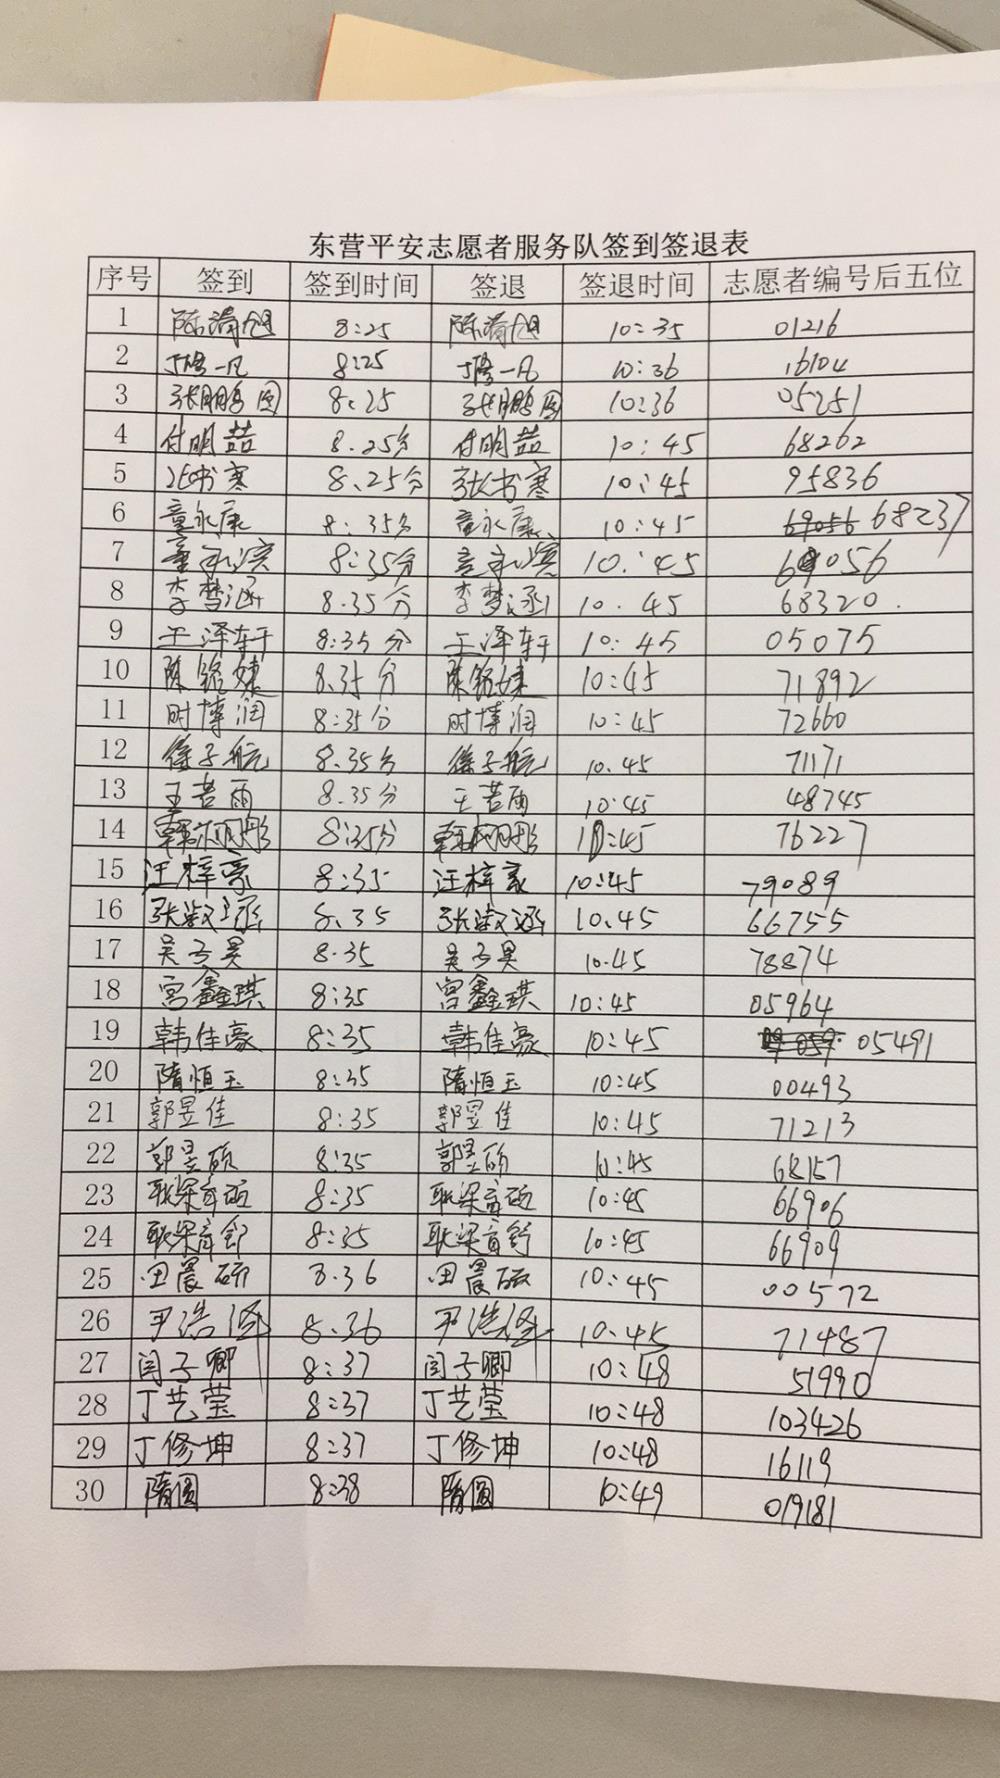 东营平安志愿者服务队签到签退表
序号 签到 签到时间 签退 签退时间 志愿者编号后五位
1 陈 旭 8:25 陈 旭 10:35 01216
2 丁修一凡 8:25 丁修一凡 10:36 16104
3 张鹏图 8:25 张鹏图 10:36 05251
4 付明喆 8.25分 付明喆 10:45 68262
5 张书寒 8.25分 张书寒 10:45 95836
6 童永康 8:35分 童永康 10:45 69056 68237
7 童 滨 8:35分 童 滨 10:45 69056
8 李梦涵 8.35分 李梦涵 10.45 68320.
9 王泽轩 8:35分 王泽轩 10:45 05075
10 陈铭婕 8.35分 陈铭婕 10:45 71892
11 时博润 8:35分 时博润 10:45 72660
12 徐子航 8.35分 徐子航 10.45 71171
13 王若雨 8.35分 王若雨 10:45 48745
14 韩栩彤 8:35分 韩栩彤 10:45 76227
15 汪梓豪 8:35 汪梓豪 10:45 79089
16 张淑涵 8.35 张淑涵 10.45 66755
17 吴子昊 8.35 吴子昊 10.45 78874
18 宫鑫琪 8:35 宫鑫琪 10:45 05964
19 韩佳豪 8:35 韩佳豪 10:45 05491
20 隋恒玉 8:35 隋恒玉 10:45 00493
21 郭昱佳 8:35 郭昱佳 10:45 71213
22 郭昱硕 8:35 郭昱硕 10:45 68157
23 耿梁育硕 8:35 耿梁育硕 10:45 66906
24 耿梁育舒 8:35 耿梁育舒 10:45 66909
25 田晨硕 8.36 田晨硕 10:45 00572
26 尹浩泽 8.36 尹浩泽 10.45 71487
27 闫子卿 8:37 闫子卿 10:48 51990
28 丁艺莹 8:37 丁艺莹 10:48 103426
29 丁修坤 8:37 丁修坤 10:48 16119
30 隋圆 8:38 隋圆 10:49 019181